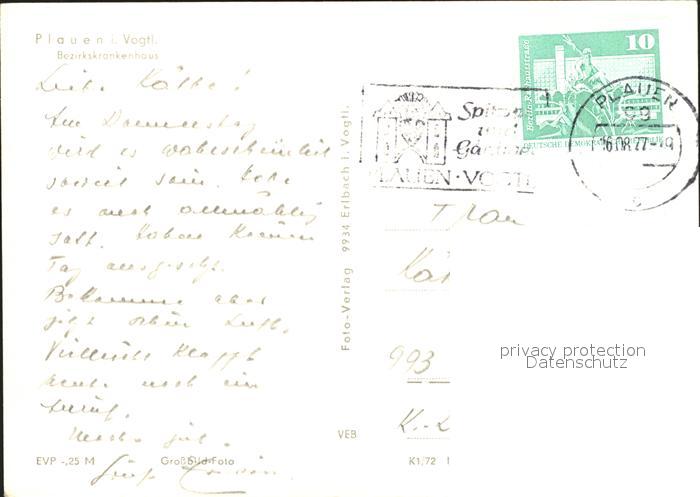 Plauen i. Vogtl.
Bezirkskrankenhaus
Liebe Käthe!
Am Donnerstag
wird es wahrscheinlich
soweit sein. Habe
es auch allmählich
satt. Haben keinen
Tag ausgesetzt.
Bekomme aber
jetzt schon Luft.
Vielleicht klappt
heute noch ein
Anruf.
Mach's gut.
Gruß
EVP -,25 M
Großbild-Foto
Foto-Verlag 9934 Erlbach i. Vogtl.
VEB
K1/72
10
Berlin-Rathausstraße
DEUTSCHE DEMOKRATISCHE REPUBLIK
Spitzen
und
Gardinen
PLAUEN·VOGTL
PLAUEN
99
16.08.77-19
Frau
Kät
993
K.-
privacy protection
Datenschutz